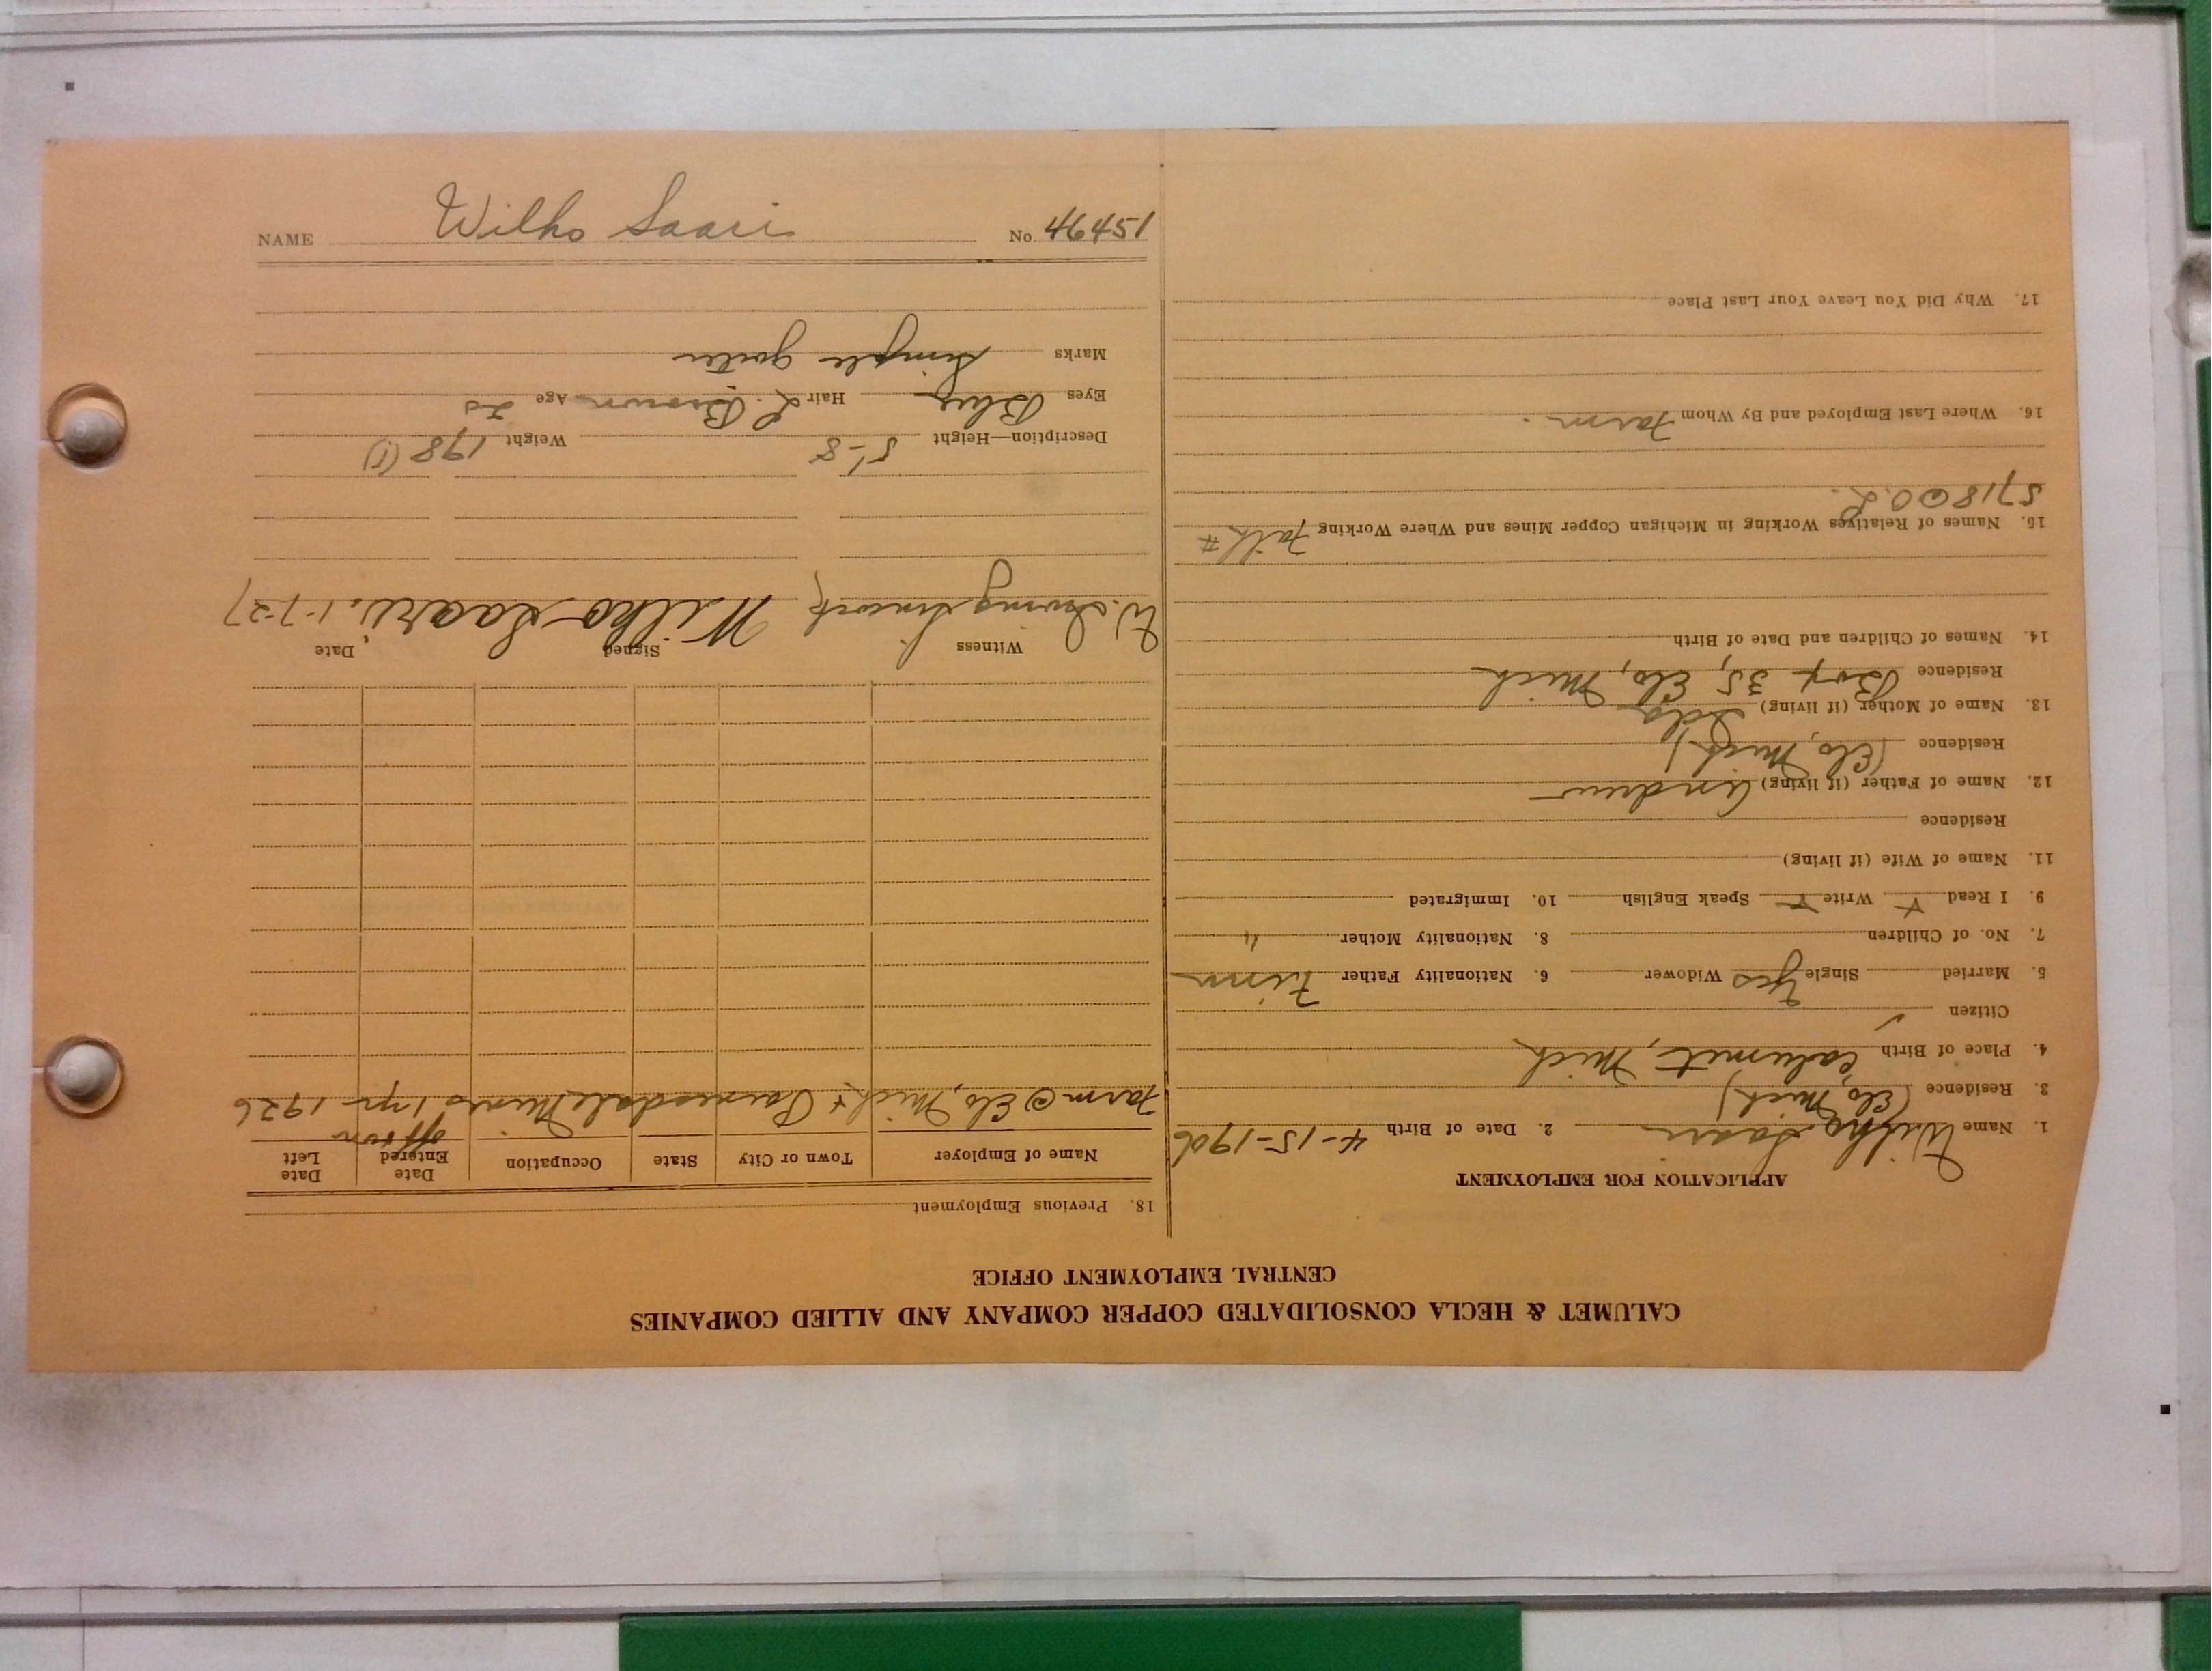 CALUMET & HECLA CONSOLIDATED COPPER COMPANY AND ALLIED COMPANIES
CENTRAL EMPLOYMENT OFFICE
APPLICATION FOR EMPLOYMENT
1. Name Wilho Saari 2. Date of Birth 4-15-1906
3. Residence (Elo, Mich)
4. Place of Birth Calumet, Mich
Citizen ✓
5. Married Single Yes Widower 6. Nationality Father Finn
7. No. of Children 8. Nationality Mother "
9. I Read Y Write Y Speak English 10. Immigrated
11. Name of Wife (if living)
Residence
12. Name of Father (if living) Andrew
Residence (Elo, Mich)
13. Name of Mother (if living) Ida
Residence Box 35, Elo, Mich
14. Names of Children and Date of Birth
15. Names of Relatives Working in Michigan Copper Mines and Where Working Fath #
5718 @ O.L.
16. Where Last Employed and By Whom Farm.
17. Why Did You Leave Your Last Place
18. Previous Employment
Name of Employer Town or City State Occupation Date Entered Date Left
off & on
Farm @ Elo, Mich + Painesdale Mines 1 yr 1926
Witness Signed Date
W. Wilho Saari. 1-7-27
Description—Height 5'-8 Weight 198 (1)
Eyes Blue Hair L. Brown Age 20
Marks Simple goiter
NAME Wilho Saari No. 46451